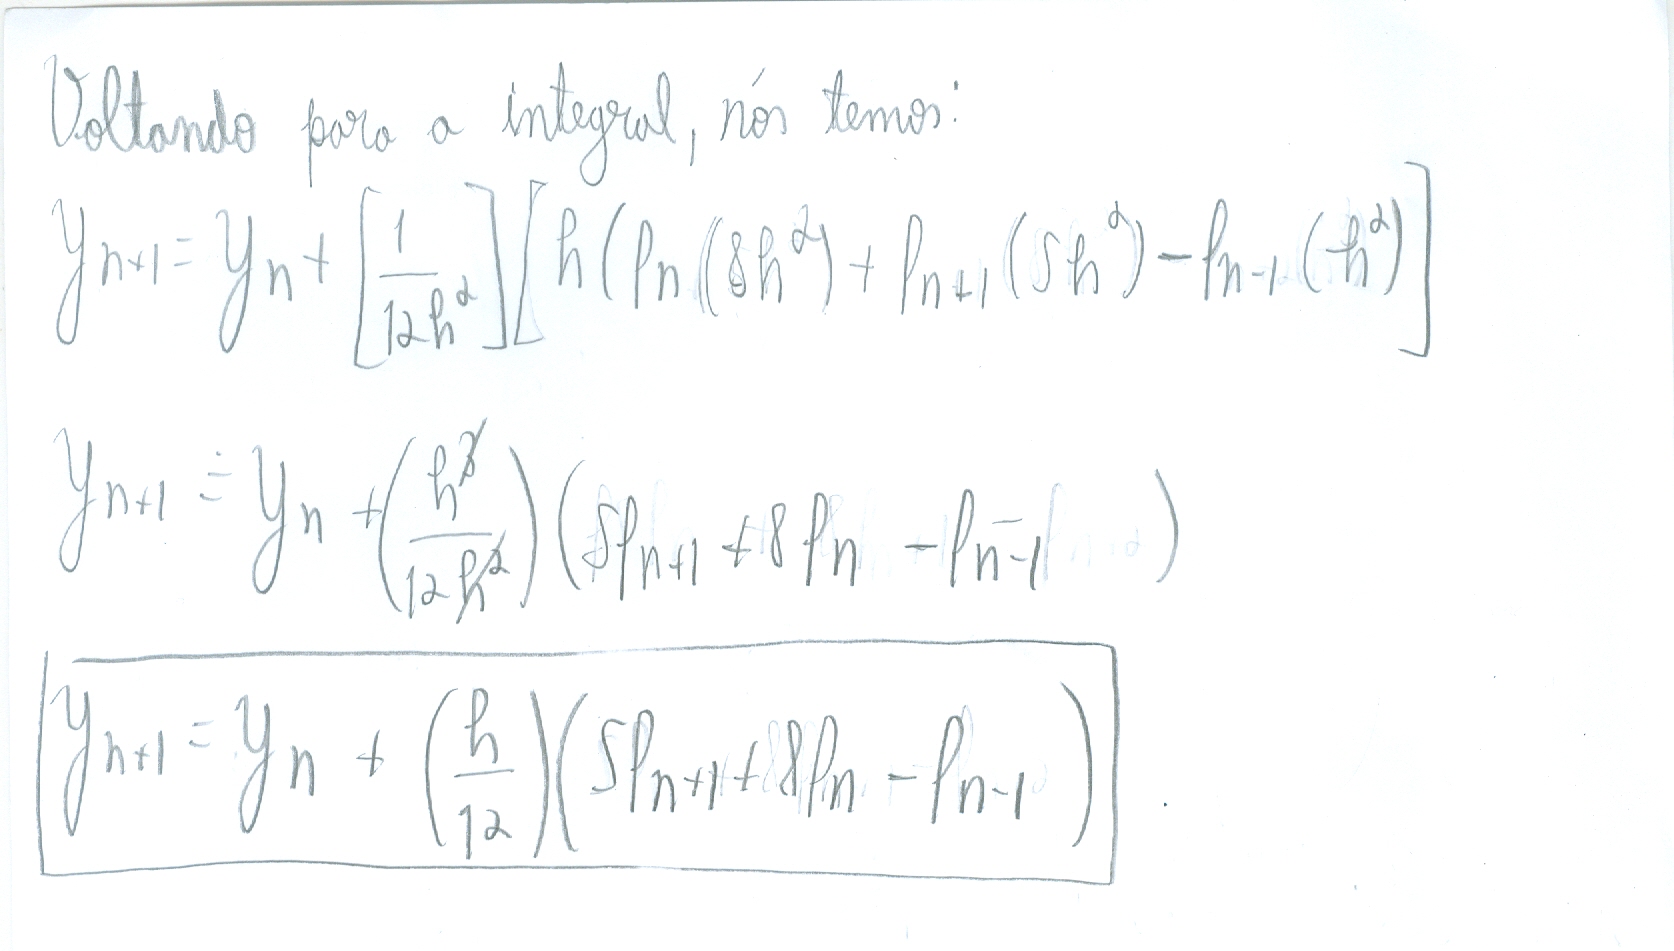 Voltando para a integral, nós temos:
y_{n+1} = y_n + [1/12h^2][h(f_n(8h^2) + f_{n+1}(5h^2) - f_{n-1}(h^2)]
y_{n+1} = y_n + (h^3/12h^2)(5f_{n+1} + 8f_n - f_{n-1})
y_{n+1} = y_n + (h/12)(5f_{n+1} + 8f_n - f_{n-1})